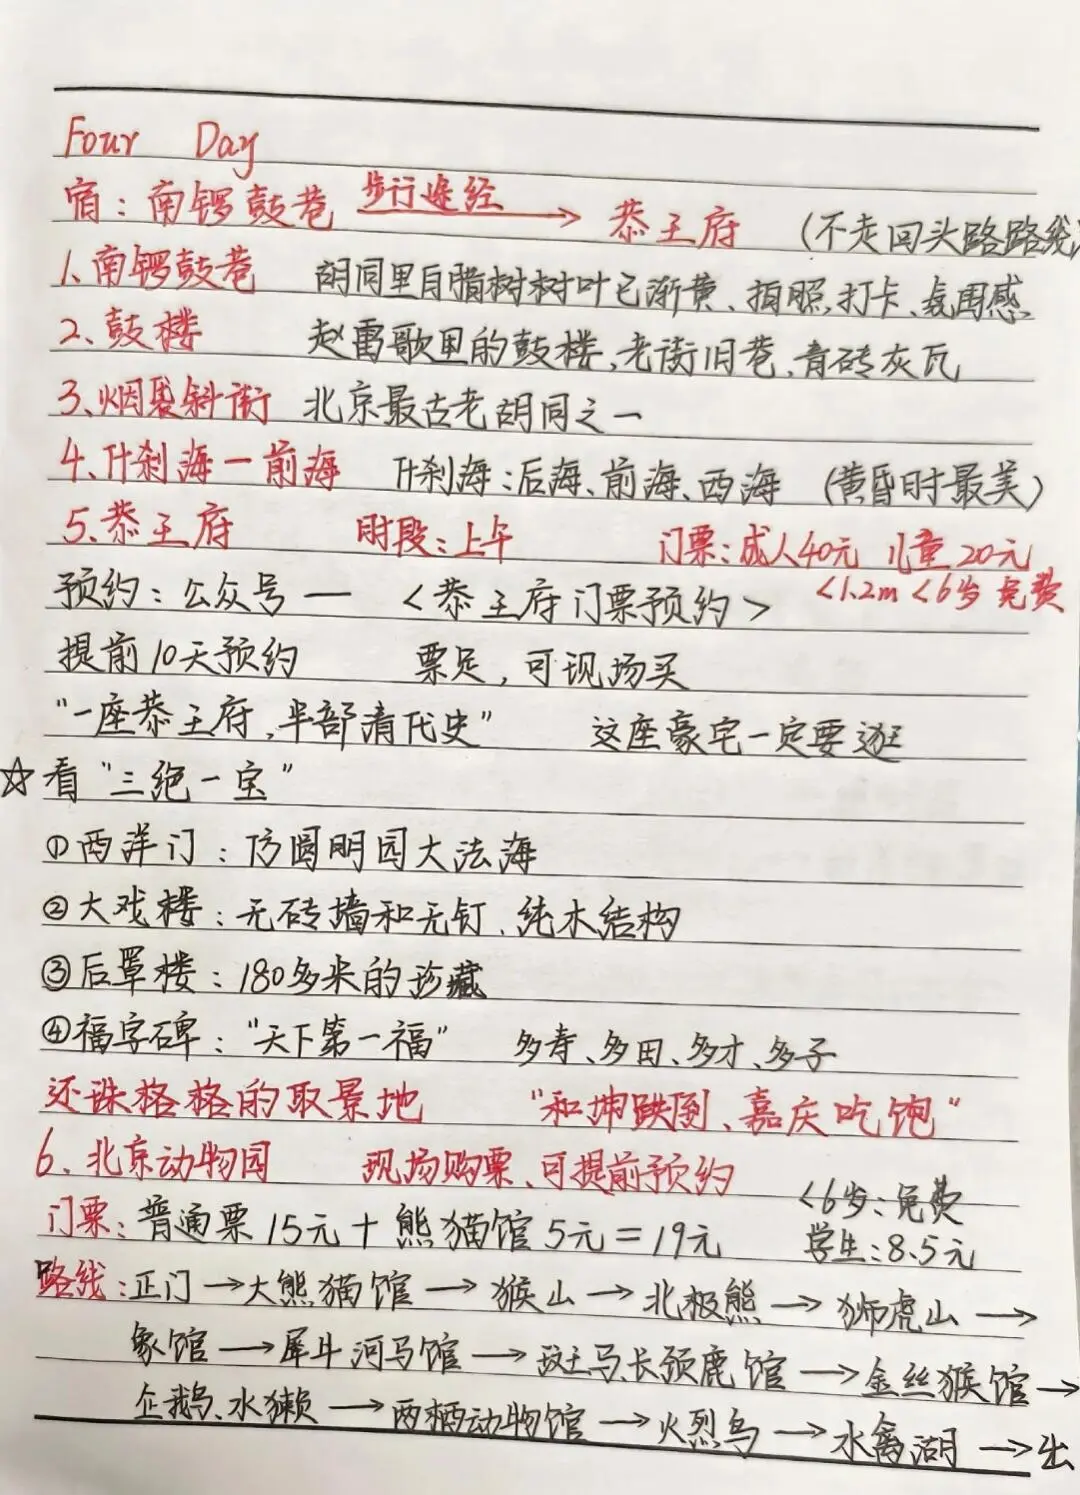 Four Day
宿：南锣鼓巷 步行途经→ 恭王府 (不走回头路路线)
1、南锣鼓巷 胡同里白腊树树叶已渐黄、拍照、打卡、氛围感
2、鼓楼 赵雷歌里的鼓楼、老街旧巷、青砖灰瓦
3、烟袋斜街 北京最古老胡同之一
4、什刹海一前海 什刹海：后海、前海、西海 (黄昏时最美)
5、恭王府 时段：上午 门票：成人40元 儿童20元
<1.2m <6岁 免费
预约：公众号一 <恭王府门票预约>
提前10天预约 票足，可现场买
"一座恭王府，半部清代史" 这座豪宅一定要逛
☆看"三绝一宝"
①西洋门：仿圆明园大法海
②大戏楼：无砖墙和无钉、纯木结构
③后罩楼：180多米的珍藏
④福字碑："天下第一福" 多寿、多田、多才、多子
还珠格格的取景地 "和珅跌倒、嘉庆吃饱"
6、北京动物园 现场购票、可提前预约
<6岁：免费
门票：普通票15元+熊猫馆5元=19元 学生：8.5元
路线：正门→大熊猫馆→猴山→北极熊→狮虎山→
象馆→犀牛河马馆→斑马、长颈鹿馆→金丝猴馆→
企鹅、水獭→两栖动物馆→火烈鸟→水禽湖→出